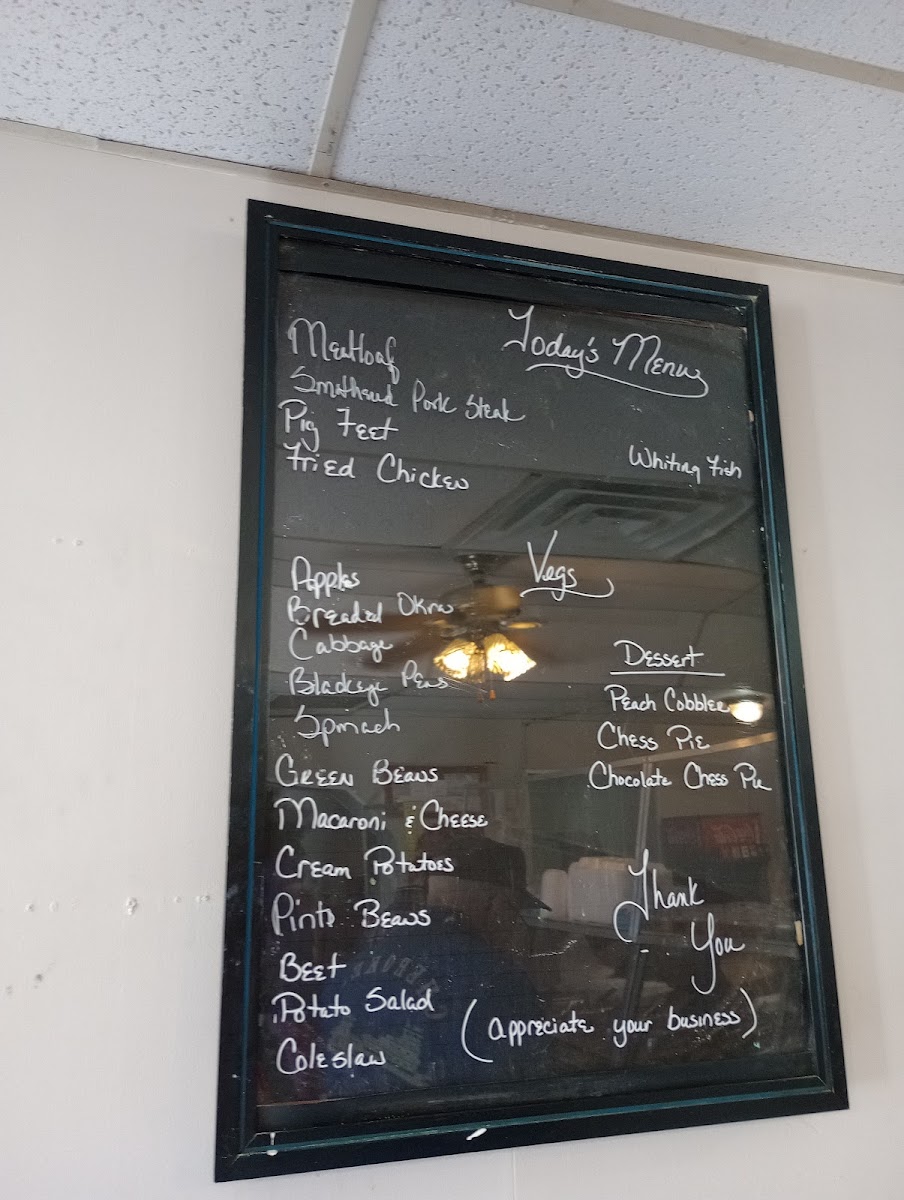 Today's Menu
Meatloaf
Smothered Pork Steak
Pig Feet
Fried Chicken
Whiting Fish
Vegs
Apples
Breaded Okra
Cabbage
Blackeye Peas
Spinach
Green Beans
Macaroni & Cheese
Cream Potatoes
Pinto Beans
Beet
Potato Salad
Coleslaw
Dessert
Peach Cobbler
Chess Pie
Chocolate Chess Pie
Thank
You
(appreciate your business)